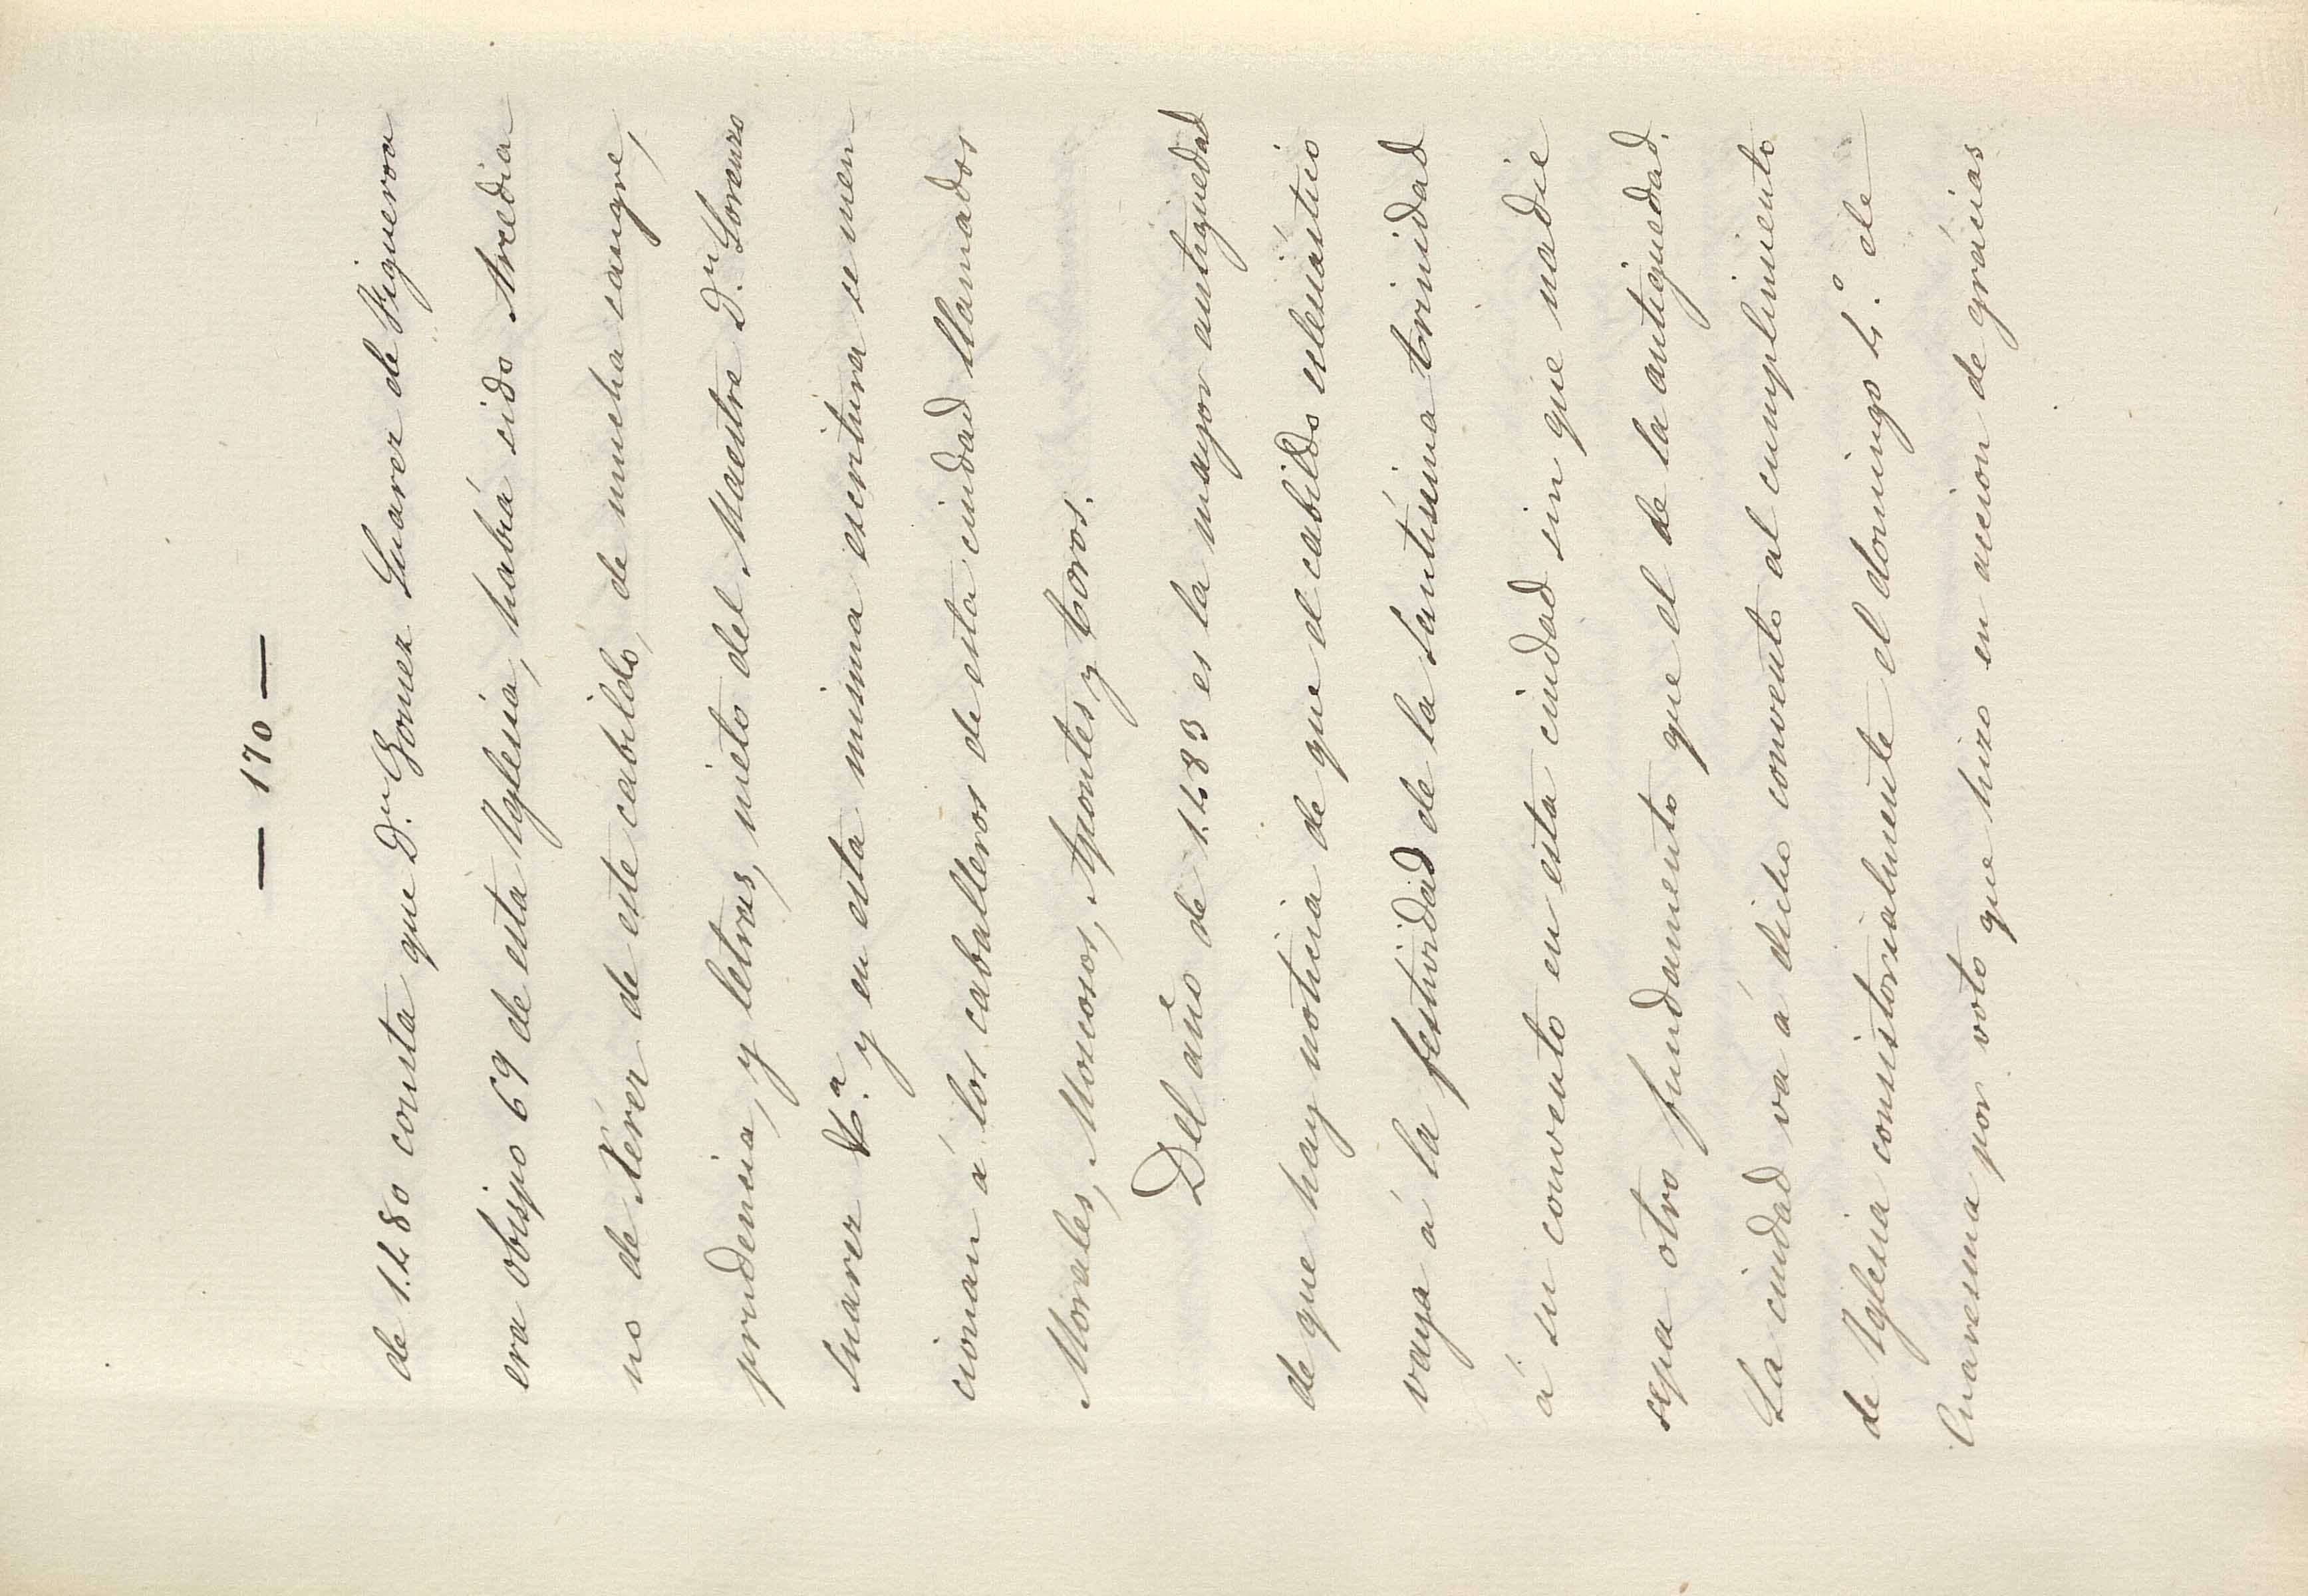 — 170 —
de 1480 consta que D.n Gomez Suarez de Figueroa
era obispo 69 de esta Yglesia, habia sido Arcedia
no de Xerez de este cabildo, de mucha sangre,
prudencia, y letras, nieto del Maestre D.n Lorenzo
Suarez &.a y en esta misma escritura se men
cionan á los caballeros de esta ciudad llamados
Morales, Moscosos, Apontes y Coros.
Del año de 1483 es la mayor antiguedad
de que hay noticia de que el cabildo eclesiástico
vaya á la festividad de la Santísima trinidad
á su convento en esta ciudad sin que nadie
sepa otro fundamento que el de la antiguedad.
La ciudad va á dicho convento al cumplimiento
de Yglesia consistorialmente el domingo 4.o de
Cuaresma por voto que hizo en accion de grácias